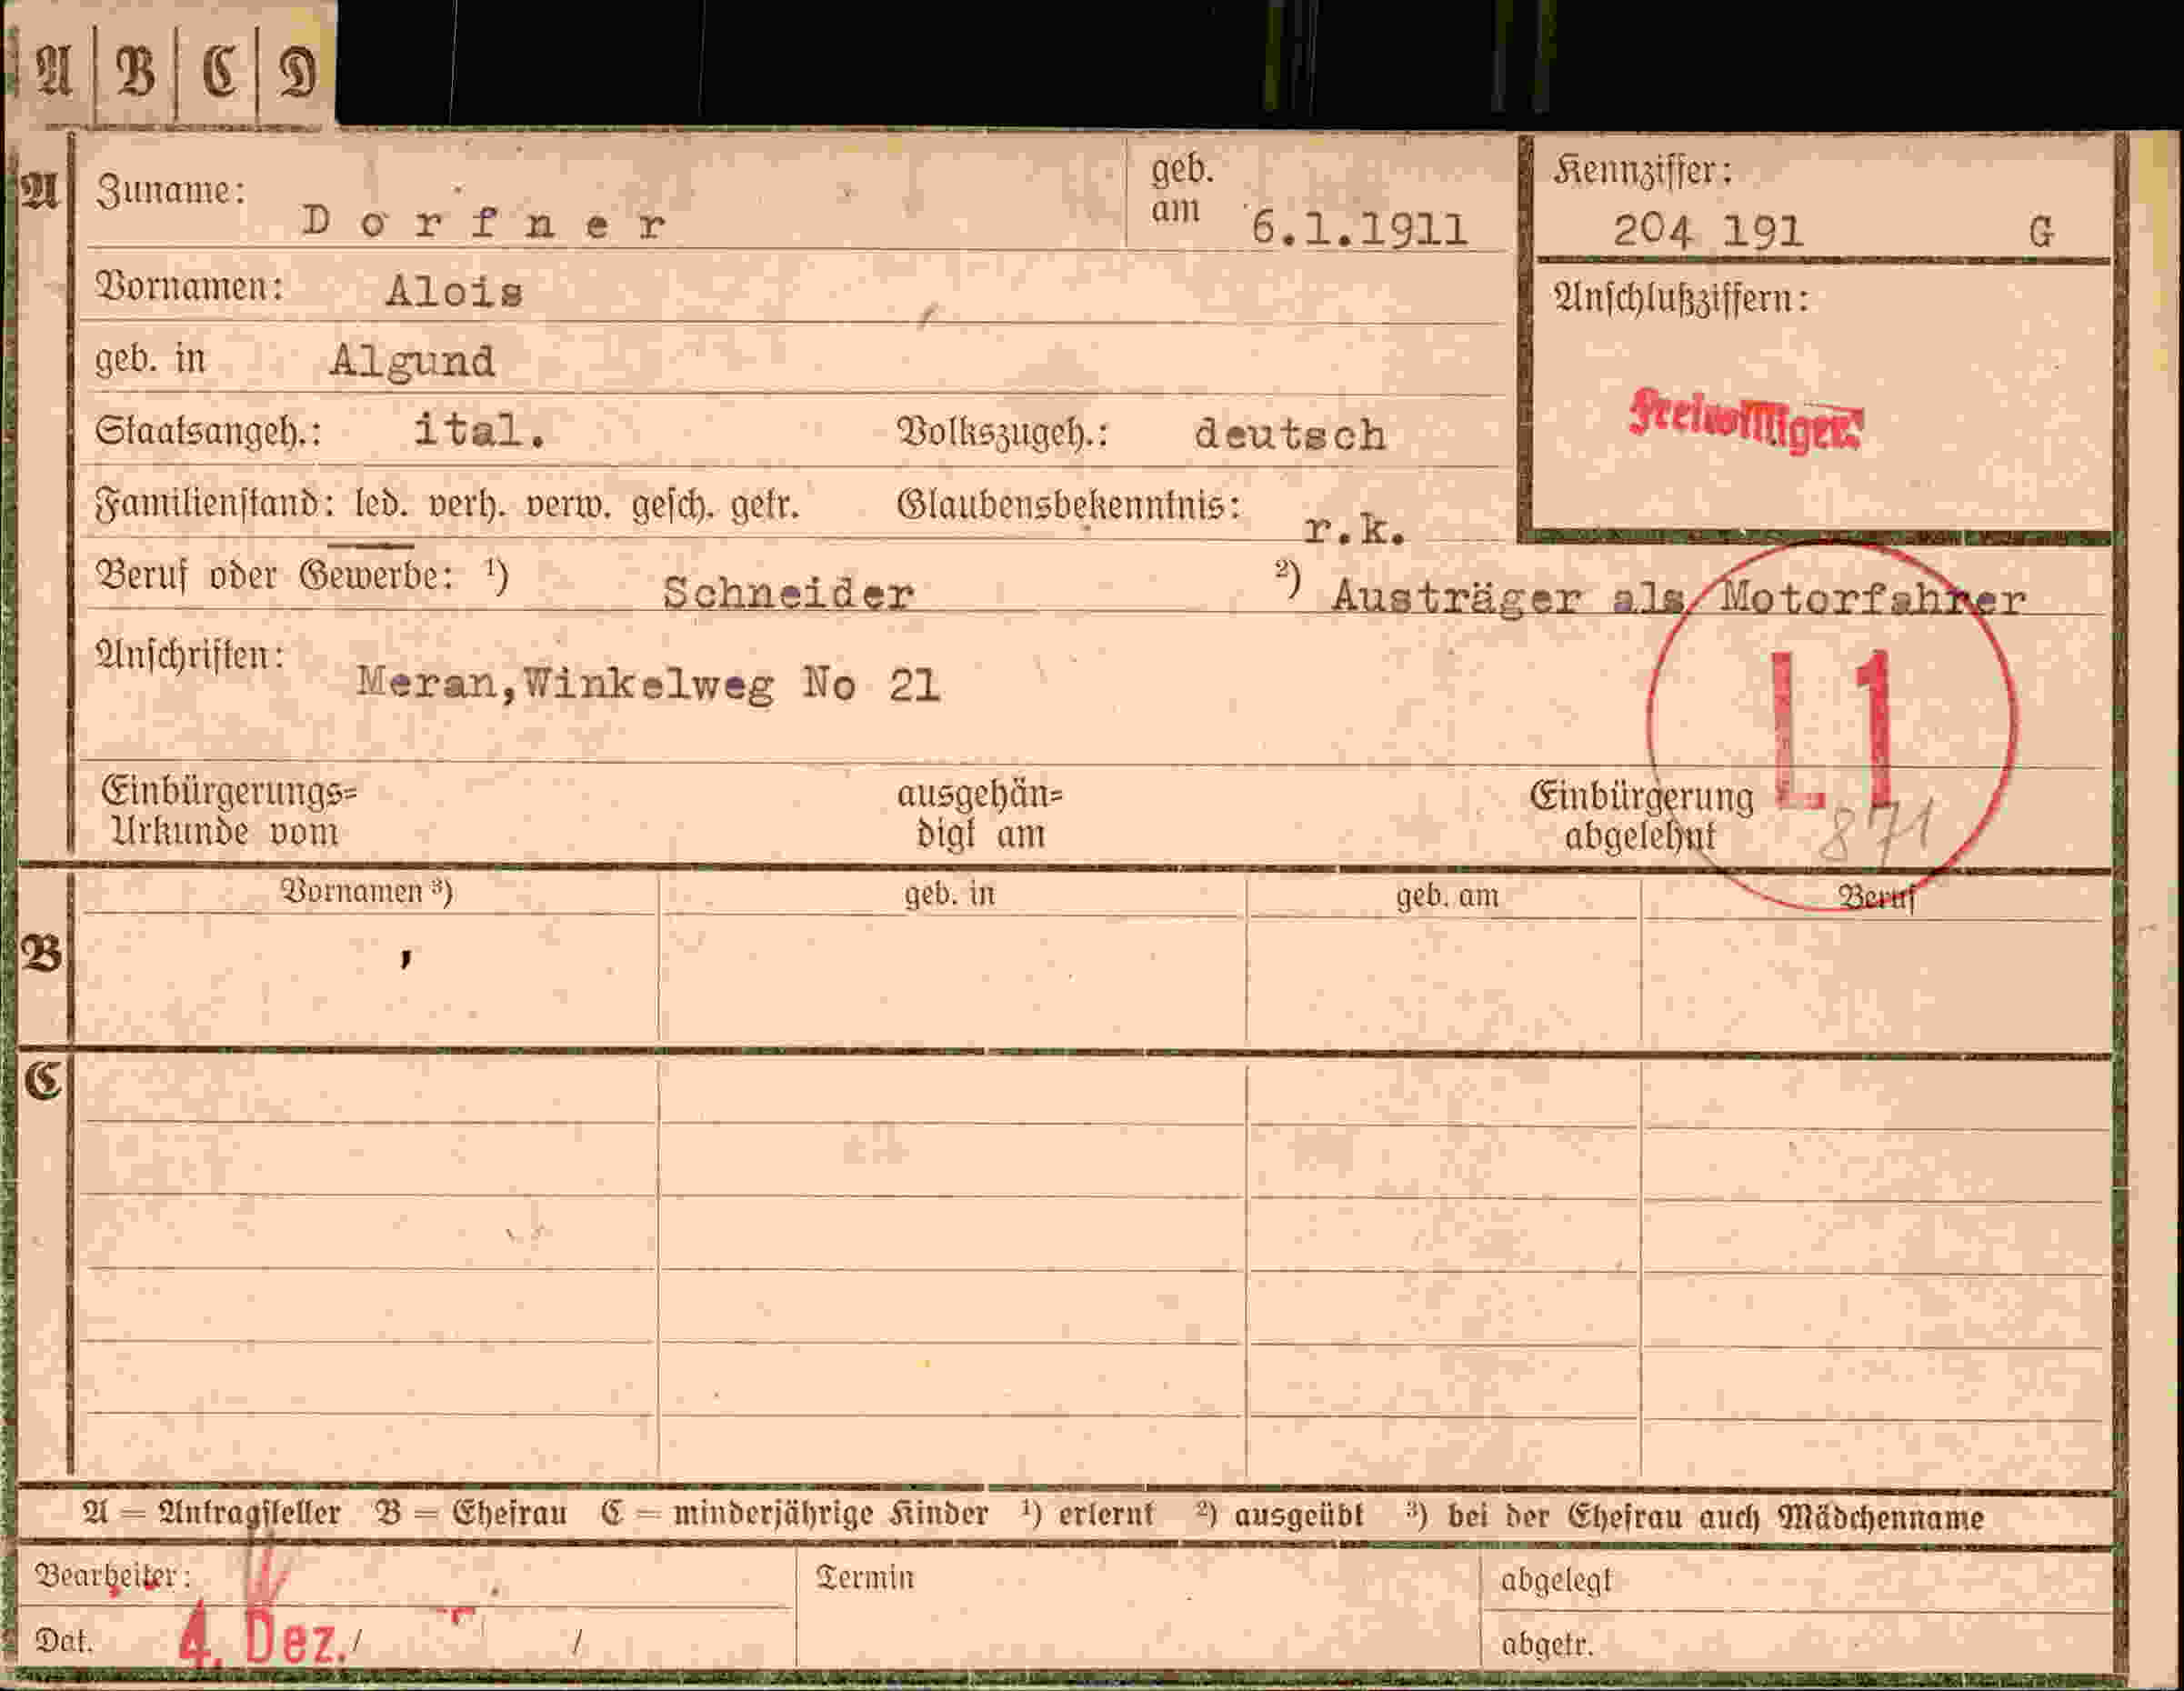 A B C D
A
Zuname: Dorfner geb. am 6.1.1911
Kennziffer:
204 191 G
Vornamen: Alois
Anschlußziffern:
geb. in Algund
Freiwilliger
Staatsangeh.: ital. Volkszugeh.: deutsch
Familienstand: led. verh. verw. gesch. getr. Glaubensbekenntnis: r.k.
Beruf oder Gewerbe: ¹) Schneider ²) Austräger als Motorfahrer
Anschriften: Meran,Winkelweg No 21
L1
871
Einbürgerungs=
Urkunde vom
ausgehän=
digt am
Einbürgerung
abgelehnt
B
Vornamen ³) geb. in geb. am Beruf
C
A = Antragsteller B = Ehefrau C = minderjährige Kinder ¹) erlernt ²) ausgeübt ³) bei der Ehefrau auch Mädchenname
Bearbeiter: Termin abgelegt
Dat. 4. Dez. / / abgetr.